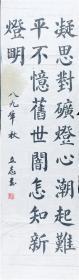 凝思對礦燈心潮起難
平不憶舊世間怎知新
燈明
八九年秋 立志書